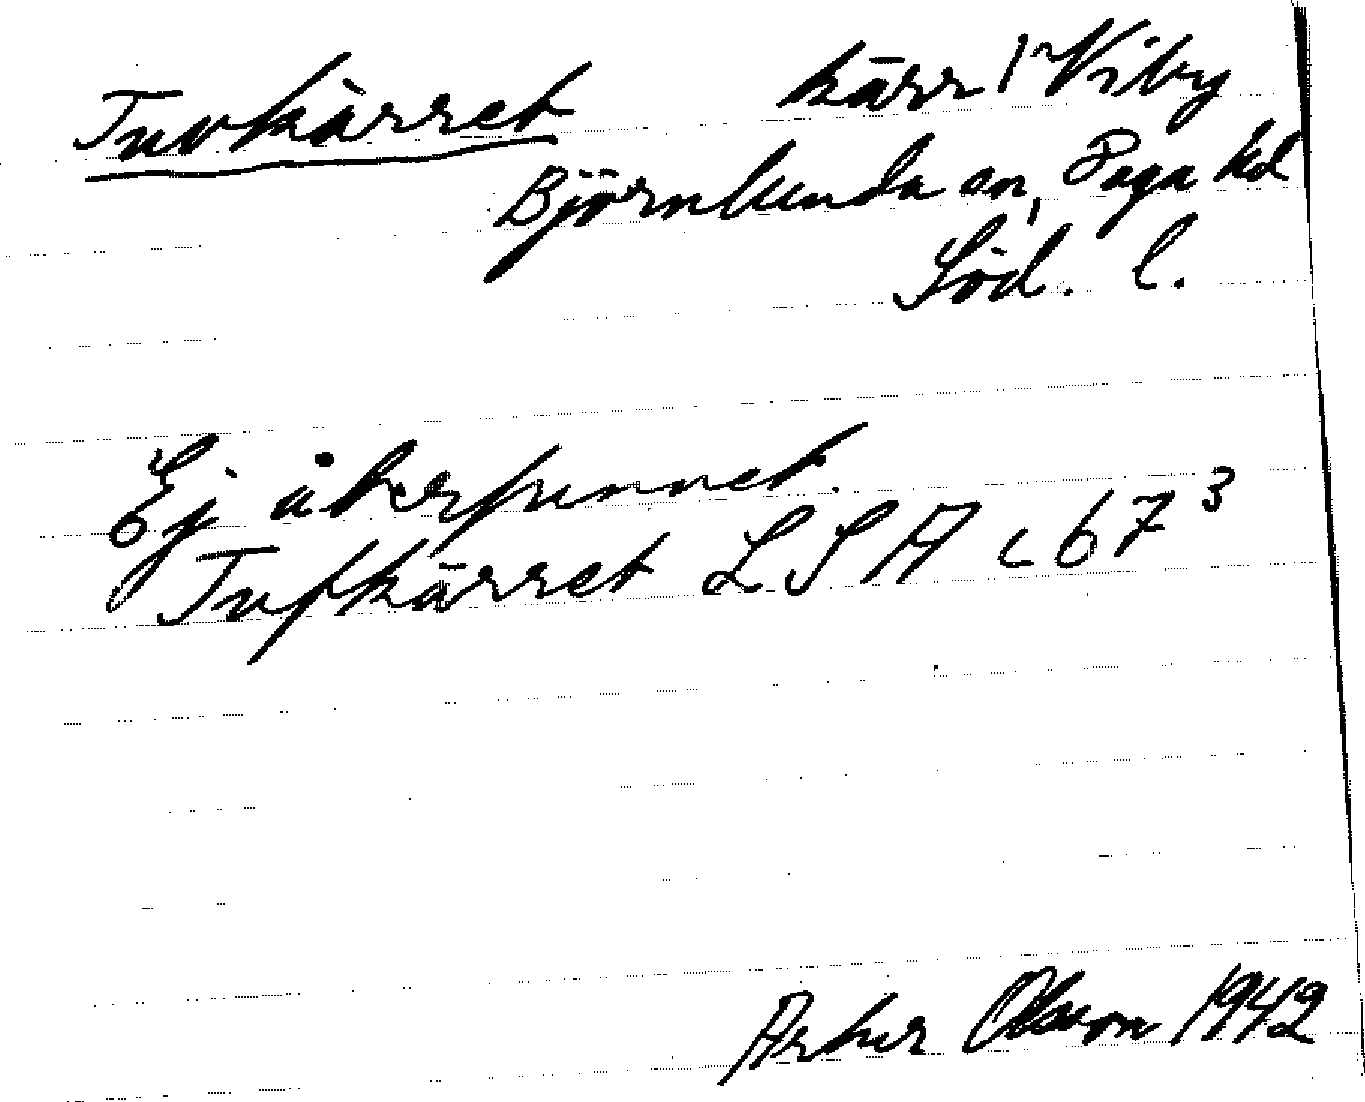 Tuvkärret kärr 1n Viby
Björnlunda sn, Daga hd
Söd. l.
Ej återfunnet.
Tufkärret LSA c67³
Arthur Olsson 1942